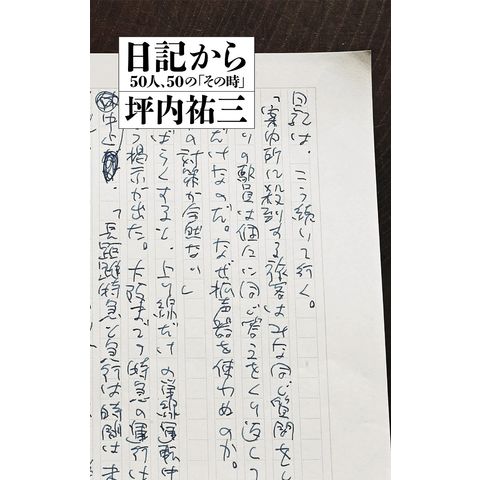 日記から
50人、50の「その時」
坪内祐三
日記は、こう続いて行く。
「案内所に殺到する旅客はみな同じ質問をし
りの駅員は個々に同じ答えをくり返して
だけなのだ。なぜ拡声器を使わぬのか。
の対策が全然ない」
ばらくすると、上り線だけの単線運転は
う掲示が出た。大阪までの特急の運行は
中止、「長距離特急と急行は時間は未